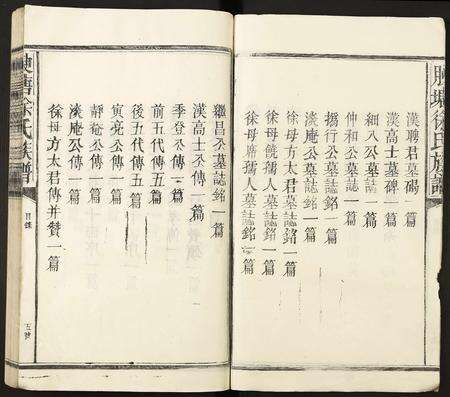 塘徐氏族譜
漢聘君墓碣一篇
漢高士墓碑一篇
細八公墓誌一篇
仲和公墓誌一篇
行公墓誌銘一篇
淡庵公墓誌銘一篇
徐母方太君墓誌銘一篇
徐母饒孺人墓誌銘一篇
徐母席孺人墓誌銘一篇
繼昌公墓誌銘一篇
漢高士公傳一篇
季登公傳一篇
前五代傳五篇
後五代傳五篇
寅亮公傳一篇
靜庵公傳一篇
淡庵公傳一篇
徐母方太君傳并贊一篇
塘徐氏族譜
目錄
五號